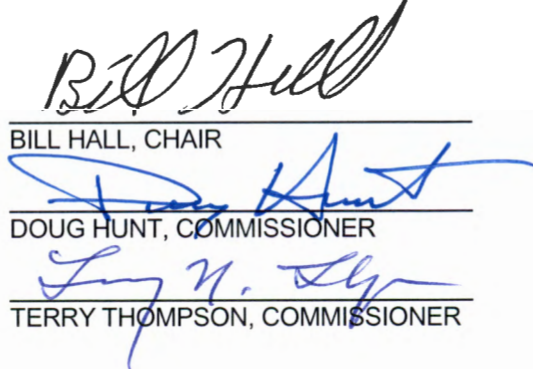 Bill Hall
BILL HALL, CHAIR
Doug Hunt
DOUG HUNT, COMMISSIONER
Terry N. Thompson
TERRY THOMPSON, COMMISSIONER